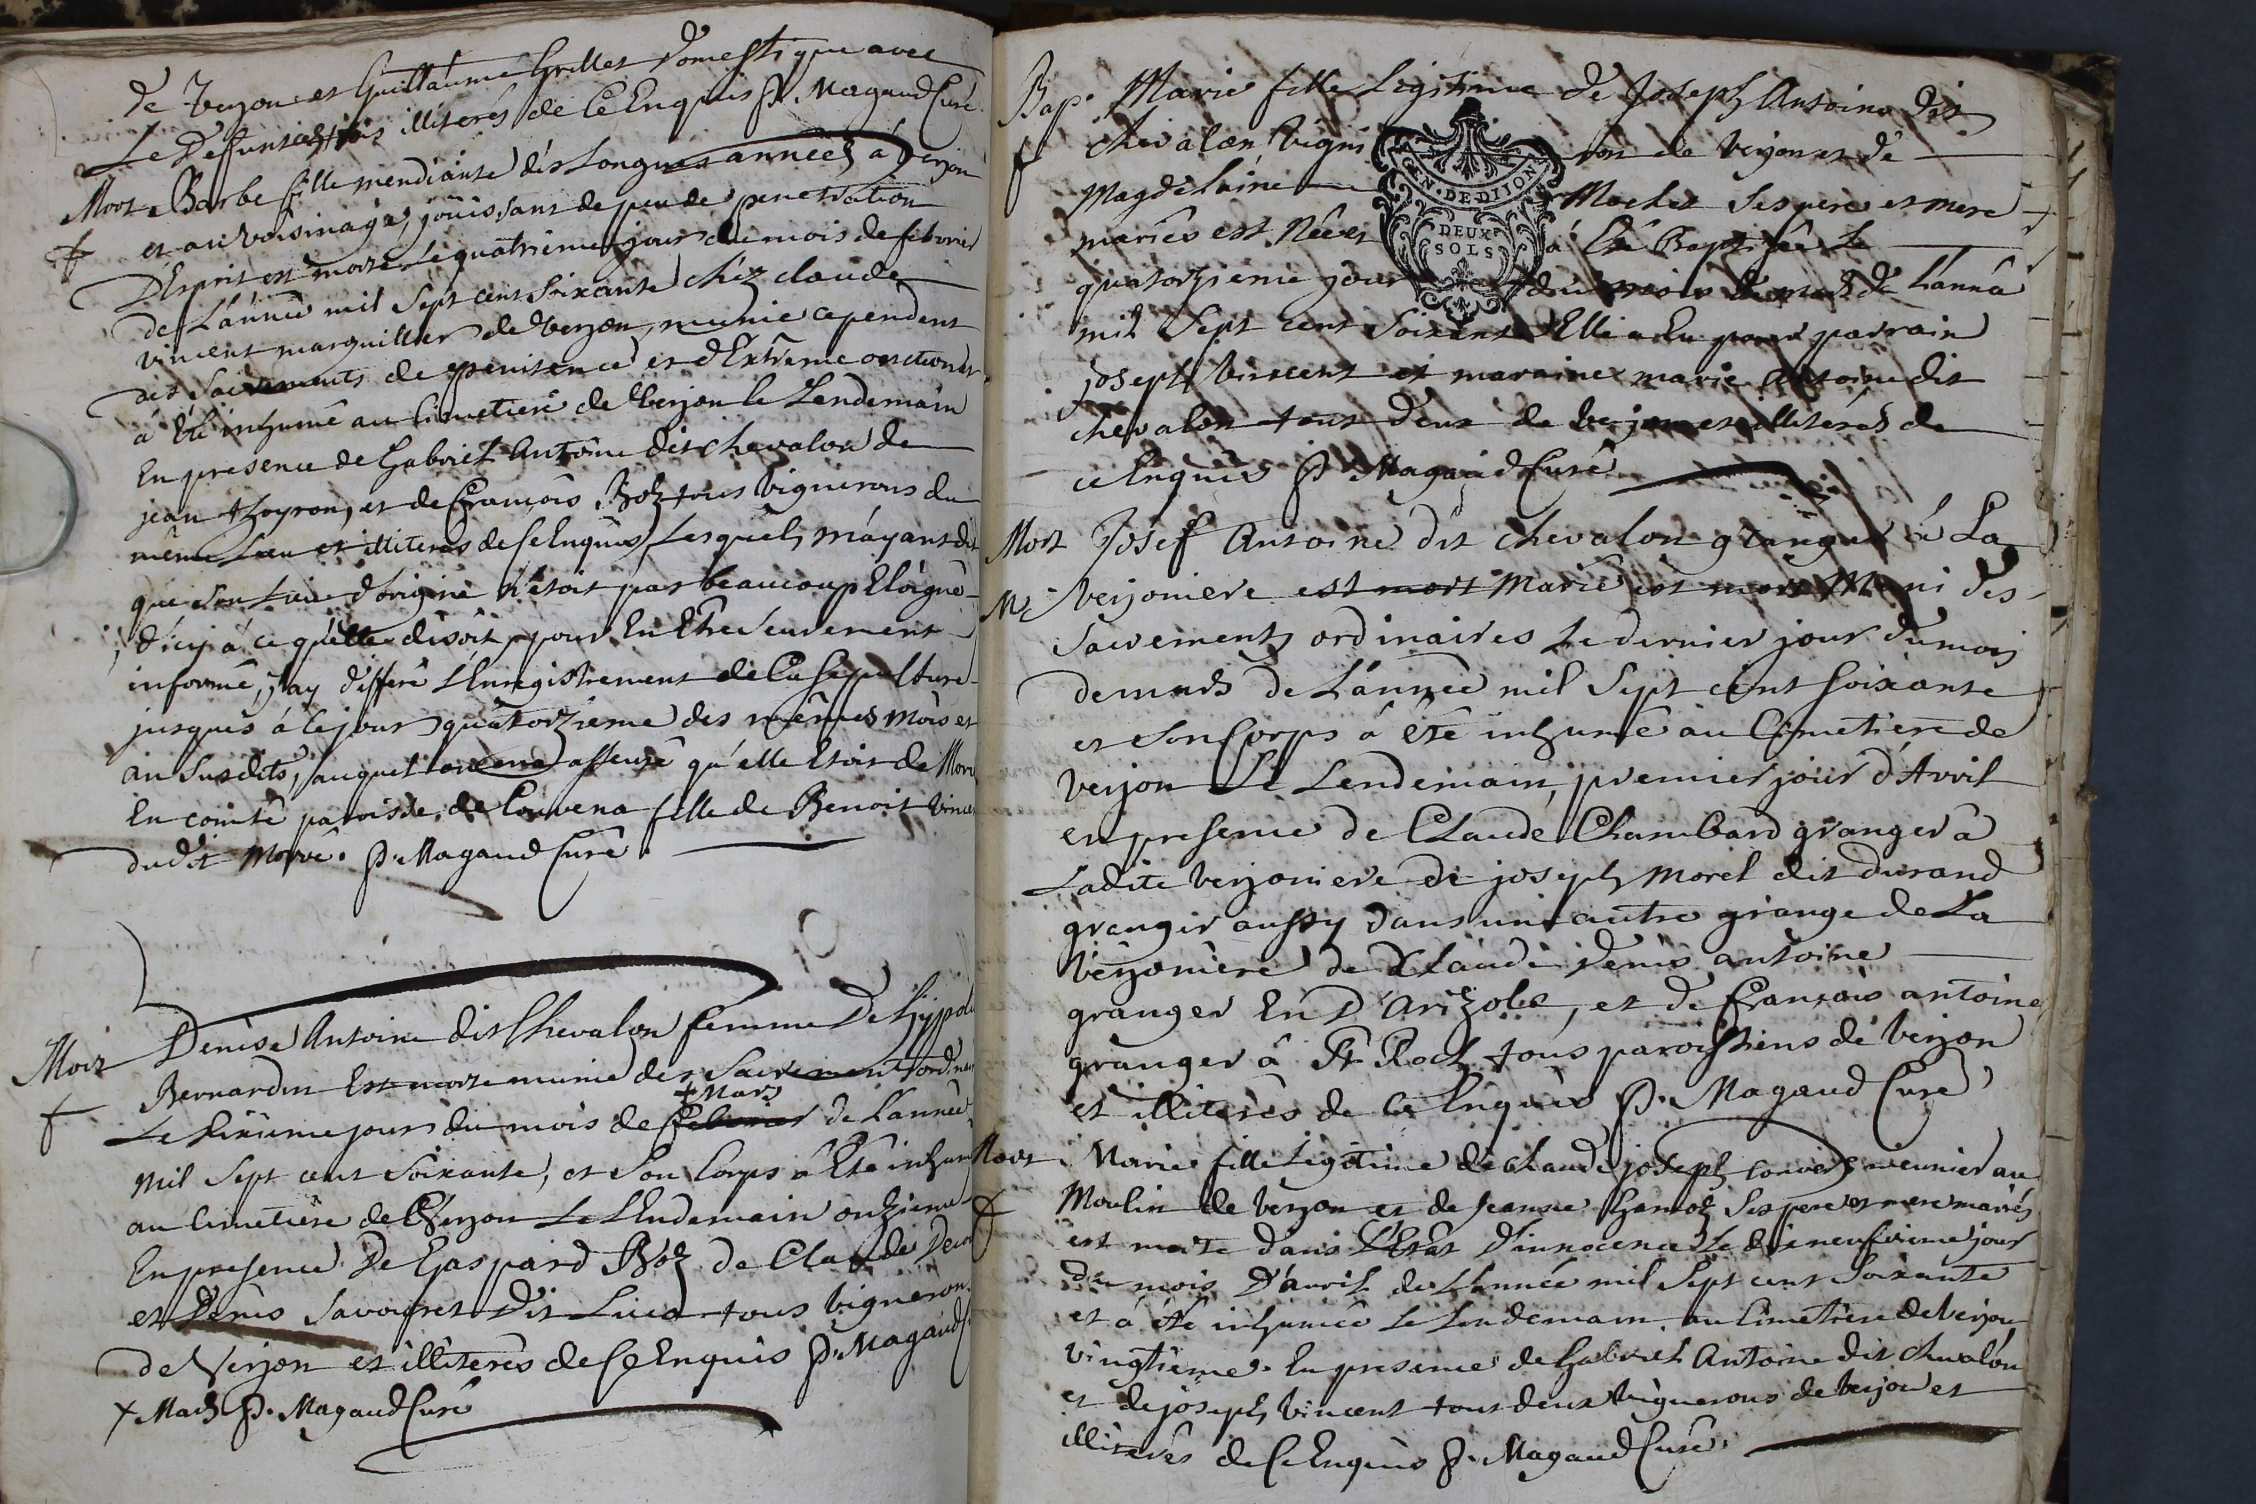 de Verjon et Guillaume Grillet Domestique avec
Le Defunt tous illiterés de Ce Enquis P. Magaud Curé
Mort Barbe fille mendiante dés Longues années à Verjon
et au voisinage, jouissant de peu de penetration
D'Esprit est morte Le quatrième jour du mois de febvrier
de L'année mil Sept cent Soixante chéz claude
vincent marguillier de Verjon, munie cependent
des Sacrements de penitence et d'Extrême onction et
à été inhumé au Cimetiere de Verjon le Lendemain
En presence de Gabriel Antoine dit chevalon de
jean, et de François Boz tous Vignerons du
même Lieu et illiterés de Ce Enquis, Lesquels m'ayant dit
que son Lieu d'origine n'étoit pas beaucoup Eloigné
d'icy à ce qu'elle disoit, pour En Etre seurement
informé, j'ay differé L'Enregistrement de La sepulture
jusques à ce jour quatorzieme des mêmes Mois et
an susdits, auquel assuré qu'elle Etoit de
En comté paroisse de fille de Benoit Vince
dudit P. Magaud Curé.
Mort Denise Antoine dit Chevalon femme De hyppoli
Bernardin Est morte munie des Sacrements ord.
+ Mars
Le dixieme jour du mois de Febvrier de L'année
mil Sept cent Soixante, et Son Corps à Eté inhum
au Cimetiere de Verjon Le Lendemain onzieme
En presence De Gaspard Boz de Claude
et Denis dit tous Vigneron
de Verjon et illiterés de Ce Enquis P. Magaud
+ Mars P. Magaud Curé
Bap. Marie fille Legitime de Joseph Antoine dit
chevalon Vigneron de Verjon et de
Magdelaine Mochet Ses pere et mere
mariés est Née et à Eté Baptisée Le
EN. DE DIJON
DEUX
SOLS
quatorzieme jour du mois de mars de L'année
mil Sept cent Soixante Elle a Eu pour parrain
joseph Vincent et maraine marie Antoine dit
chevalon tous deux de Verjon et illiterés de
ce Enquis P. Magaud Curé
Mort Josef Antoine dit chevalon granger à La
Verjoniere est mort Marié est mort Muni des
Sacrements ordinaires Le dernier jour du mois
de mars de L'année mil Sept cent soixante
et Son Corps à été inhumé au Cimetiere de
Verjon Le Lendemain, premier jour d'Avril
en presence de Claude Chambard granger à
Ladite Verjoniere de joseph Morel dit Durand
granger aussy dans un autre grange de La
Verjoniere de Claude Denis antoine
granger En, et de François antoine
granger à St Roch tous paroissiens de Verjon
et illiterés de Ce Enquis P. Magaud Curé
Mort Marie fille Legitime de Claude joseph meunier au
Moulin de Verjon et de Jeanne Ses pere et mere mariés
est morte dans L'Etat D'innocence Le dixneuvieme jour
du mois D'avril de L'année mil Sept cent Soixante
et à été inhumée Le Lendemain au Cimetiere de Verjon
vingtieme. En presence de Gabriel Antoine dit chevalon
et de joseph Vincent tous deux Vignerons de Verjon et
illiterés de Ce Enquis P. Magaud Curé.